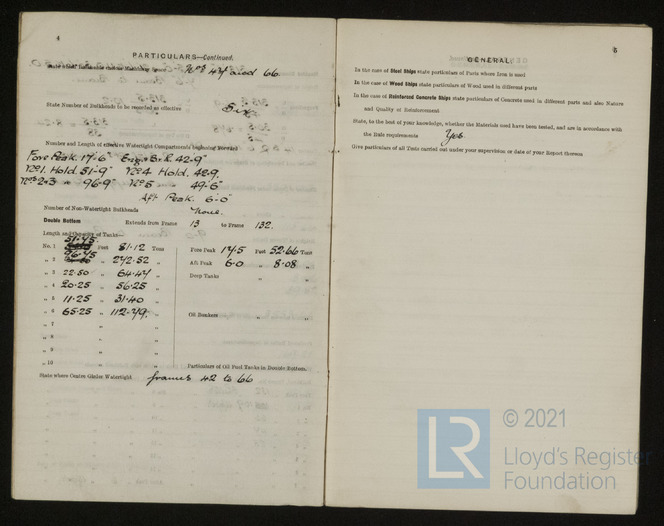 4
PARTICULARS—Continued.
State which Bulkheads enclose Machinery Space Nos 44 and 66.
State Number of Bulkheads to be recorded as effective Six
Number and Length of effective Watertight Compartments beginning Forward
Fore Peak. 17'-6" Eng & B. R. 42-9"
No 1. Hold. 51-9" No 4 Hold. 42-9.
Nos 2 & 3 " 96-9" No 5 " 49-6"
Aft Peak. 6-0"
Number of Non-Watertight Bulkheads None.
Double Bottom Extends from Frame 13 to Frame 132.
Length and Capacity of Tanks—
No. 1 51.75 Feet 81.12 Tons Fore Peak 17.5 Feet 52.66 Tons
„ 2 96.75 „ 242.52 „ Aft Peak 6.0 „ 8.08 „
„ 3 22.50 „ 64.47 „ Deep Tanks „ „
„ 4 20.25 „ 56.25 „
„ 5 11.25 „ 31.40 „
„ 6 65.25 „ 112.79. „ Oil Bunkers „ „
„ 7 „ „
„ 8 „ „
„ 9 „ „
„ 10 „ „ Particulars of Oil Fuel Tanks in Double Bottom.
State where Centre Girder Watertight frames 42 to 66
5
GENERAL.
In the case of Steel Ships state particulars of Parts where Iron is used
In the case of Wood Ships state particulars of Wood used in different parts
In the case of Reinforced Concrete Ships state particulars of Concrete used in different parts and also Nature
and Quality of Reinforcement
State, to the best of your knowledge, whether the Materials used have been tested, and are in accordance with
the Rule requirements Yes.
Give particulars of all Tests carried out under your supervision or date of your Report thereon
LR
© 2021
Lloyd's Register
Foundation